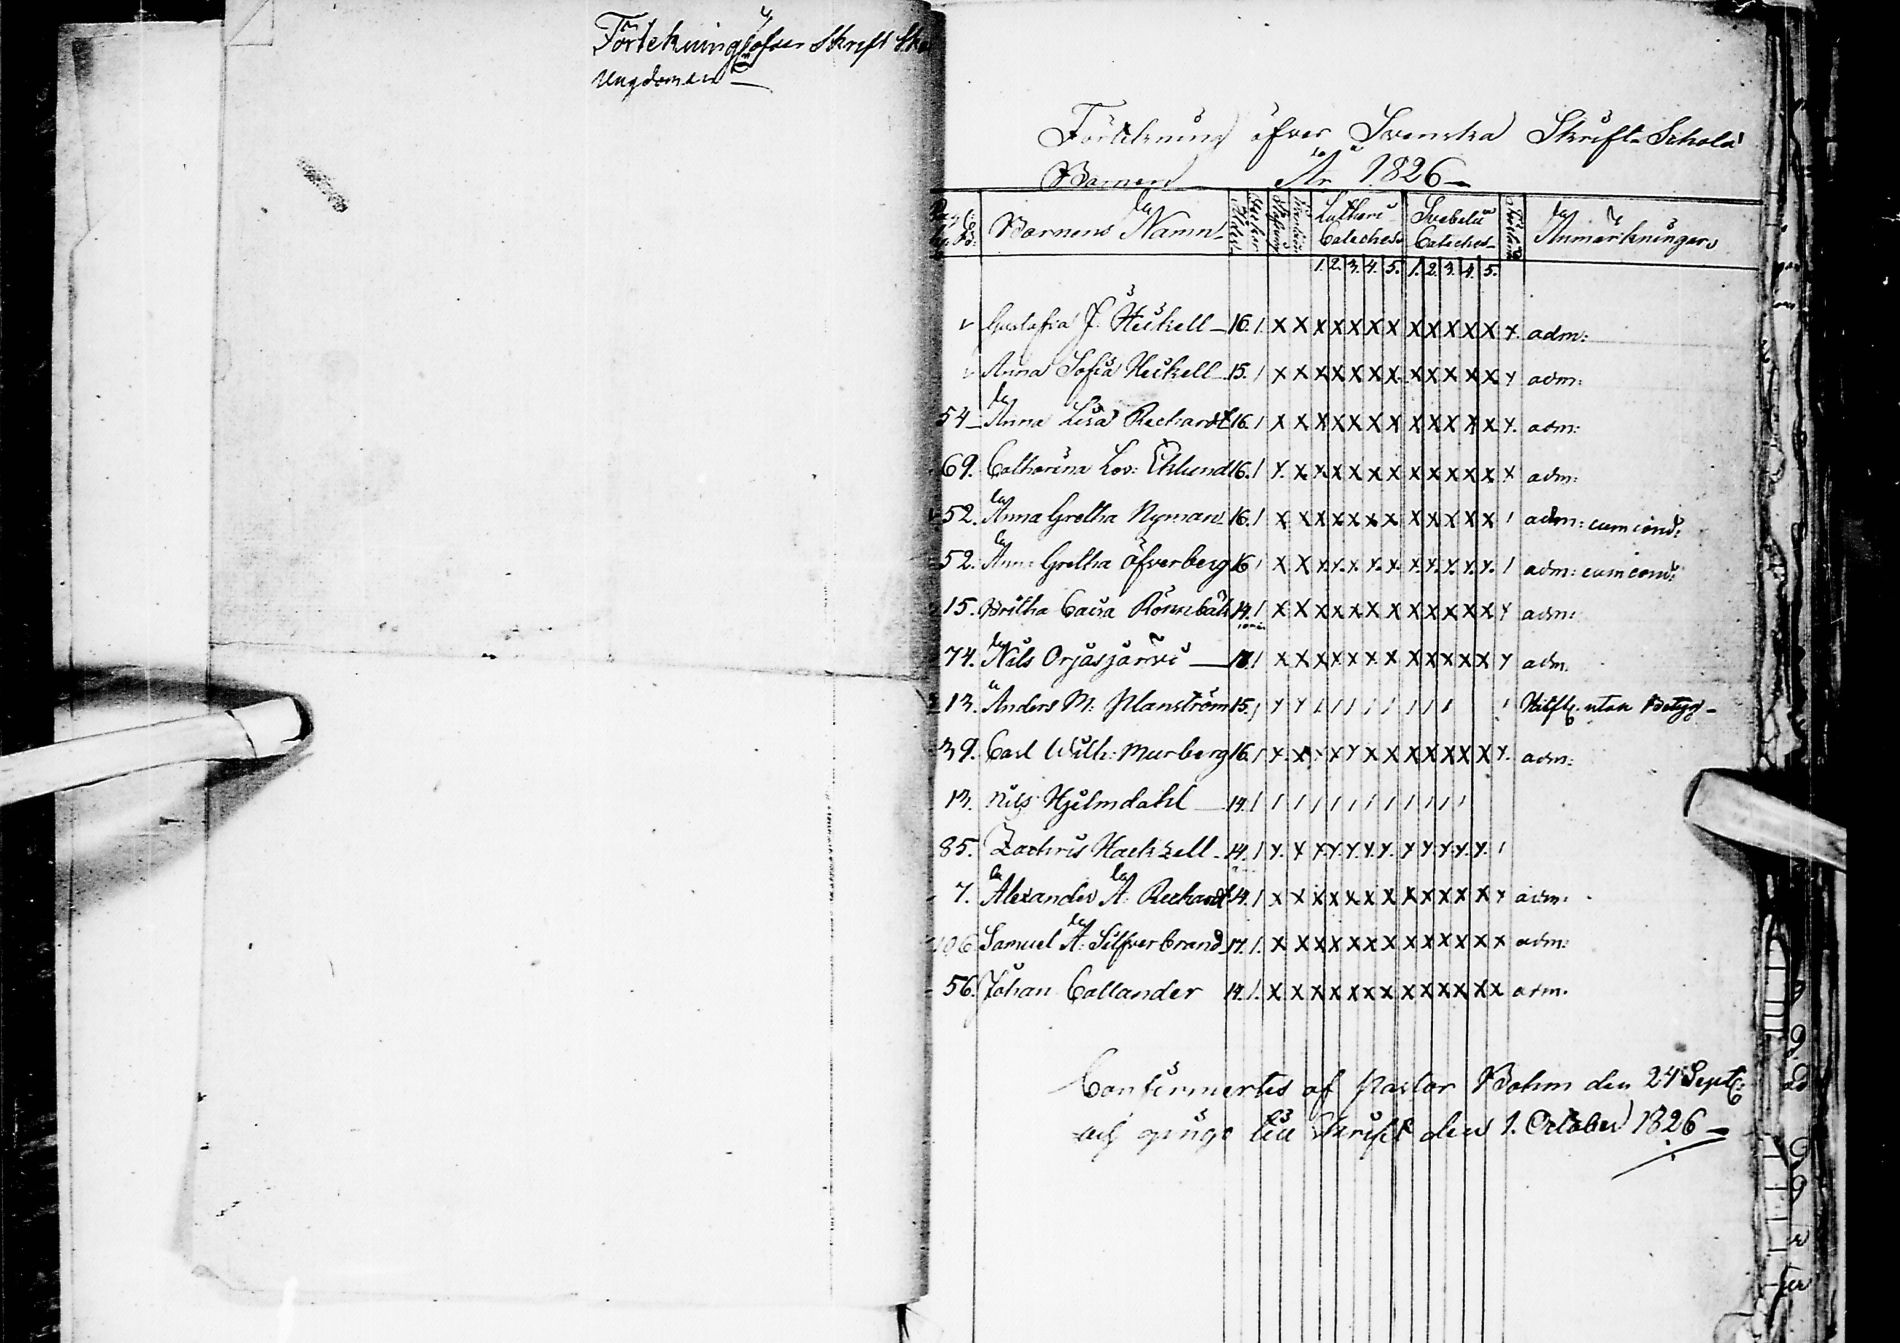 Förtekning öfver Skrift Sko
Ungdomen
Förtekning öfver Svenska Skrift Schola
Barnen År 1826
Barnens Namn Ålder Lutheri Cateches Svebelii Cateches Anmärkningar
1. 2. 3. 4. 5. 1. 2. 3. 4. 5.
Gustafva J. Heikell 16. / x x x x x x x x x x x x x adm:
Anna Sofia Heikell 15. / x x x x x x x x x x x x x adm:
54 Anna Lisa Rechardt 16. / x x x x x x x x x x x x x adm:
69. Catharina Lov: Eklund 16. / x x x x x x x x x x x x x adm:
52. Anna Gretha Nyman 16. / x x x x x x x x x x x x / adm: cum cond:
52. Anna Gretha Öfverberg 16 / x x x x x x x x x x x x / adm: cum cond:
15. Britha Caisa Rönnbäck 14. / x x x x x x x x x x x x x adm:
74. Nils Orjasjärvi 18. / x x x x x x x x x x x x x adm.
13. Anders M: Planström 15. / x x / / / / / / / / / utan Betyg
39. Carl Wilh: Murberg 16. / x x x x x x x x x x x x x adm:
13. Nils Hjelmdahl 14. / / / / / / / / / / /
85. Zachris Hackzell 14. / x x x x x x x x x x x x /
7. Alexander A. Rechardt 14. / x x x x x x x x x x x x x adm:
106 Samuel A: Silfverbrand 17. / x x x x x x x x x x x x x adm:
56. Johan Callander 14. / x x x x x x x x x x x x x adm.
Confirmertes af Pastor Bohm den 24 Sept:
och gingo till Skrift den 1. October 1826